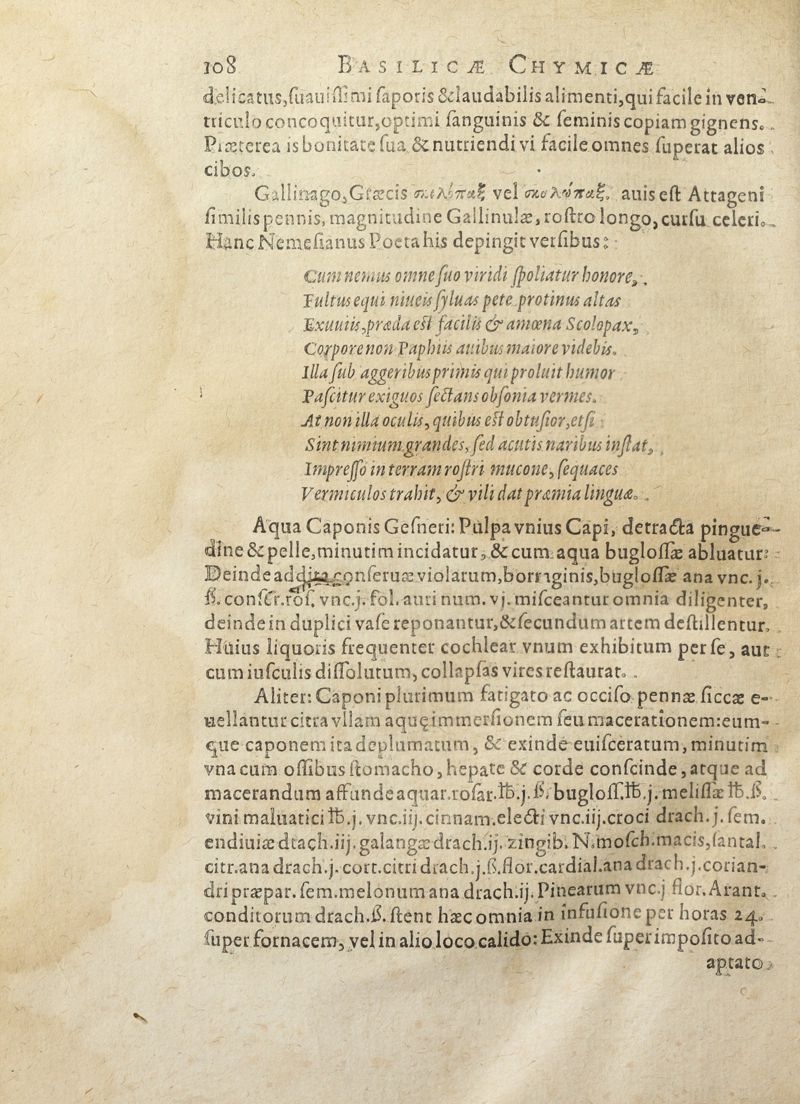 108 BASILICÆ CHYMICÆ
delicatus,ſuauiſſimi ſaporis &laudabilis alimenti,qui facile in ven-
triculo concoquitur,optimi ſanguinis & ſeminis copiam gignens.
Præterea is bonitate ſua & nutriendi vi facile omnes ſuperat alios
cibos.
Gallinago,Græcis σκολόπαξ vel σκολώπαξ, auis eſt Attageni
ſimilis pennis, magnitudine Gallinulæ, roſtro longo, curſu celeri.
Hanc Nemeſianus Poeta his depingit verſibus:
Cum nemus omne ſuo viridi ſpoliatur honore,
Fultus equi niueis ſyluas pete protinus altas
Exuuiis,præda eſt facilis & amœna Scolopax,
Corpore non Paphiis auibus maiore videbis.
Illa ſub aggeribus primis qui proluit humor
Paſcitur exiguos ſectans obſonia vermes.
At non illa oculis, quibus eſt obtuſior,etſi
Sint nimium grandes, ſed acutis naribus inſtat,
Impreſſo in terram roſtri mucone, ſequaces
Vermiculos trahit, & vili dat præmia linguæ.
Aqua Caponis Geſneri: Pulpa vnius Capi, detracta pingue-
dine & pelle,minutim incidatur, & cum aqua bugloſſæ abluatur:
Deinde adde conſeruæ violarum,borraginis,bugloſſæ ana vnc. j.
ß. conſer.roſ. vnc.j. fol. auri num. vj. miſceantur omnia diligenter,
deinde in duplici vaſe reponantur,&ſecundum artem deſtillentur.
Huius liquoris frequenter cochlear vnum exhibitum per ſe, aut
cum iuſculis diſſolutum, collapſas vires reſtaurat.
Aliter: Caponi plurimum fatigato ac occiſo pennæ ſiccæ e-
uellantur citra vllam aquę immerſionem ſeu macerationem:eum-
que caponem ita deplumatum, & exinde euiſceratum, minutim
vna cum oſſibus ſtomacho, hepate & corde conſcinde, atque ad
macerandum affunde aquar.roſar.℔.j.ß. bugloſſ.℔.j. meliſſæ ℔.ß.
vini maluatici ℔.j. vnc.iij. cinnam.electi vnc.iij.croci drach. j. ſem.
endiuiæ drach.iij. galangæ drach.ij. zingib. N.moſch.macis,ſantal.
citr.ana drach.j. cort.citri drach.j.ß.flor.cardial.ana drach.j.corian-
dri præpar. ſem.melonum ana drach.ij. Pinearum vnc.j flor. Arant.
conditorum drach.ß. ſtent hæc omnia in infuſione per horas 24.
ſuper fornacem, vel in alio loco calido: Exinde ſuperimpoſito ad-
aptato